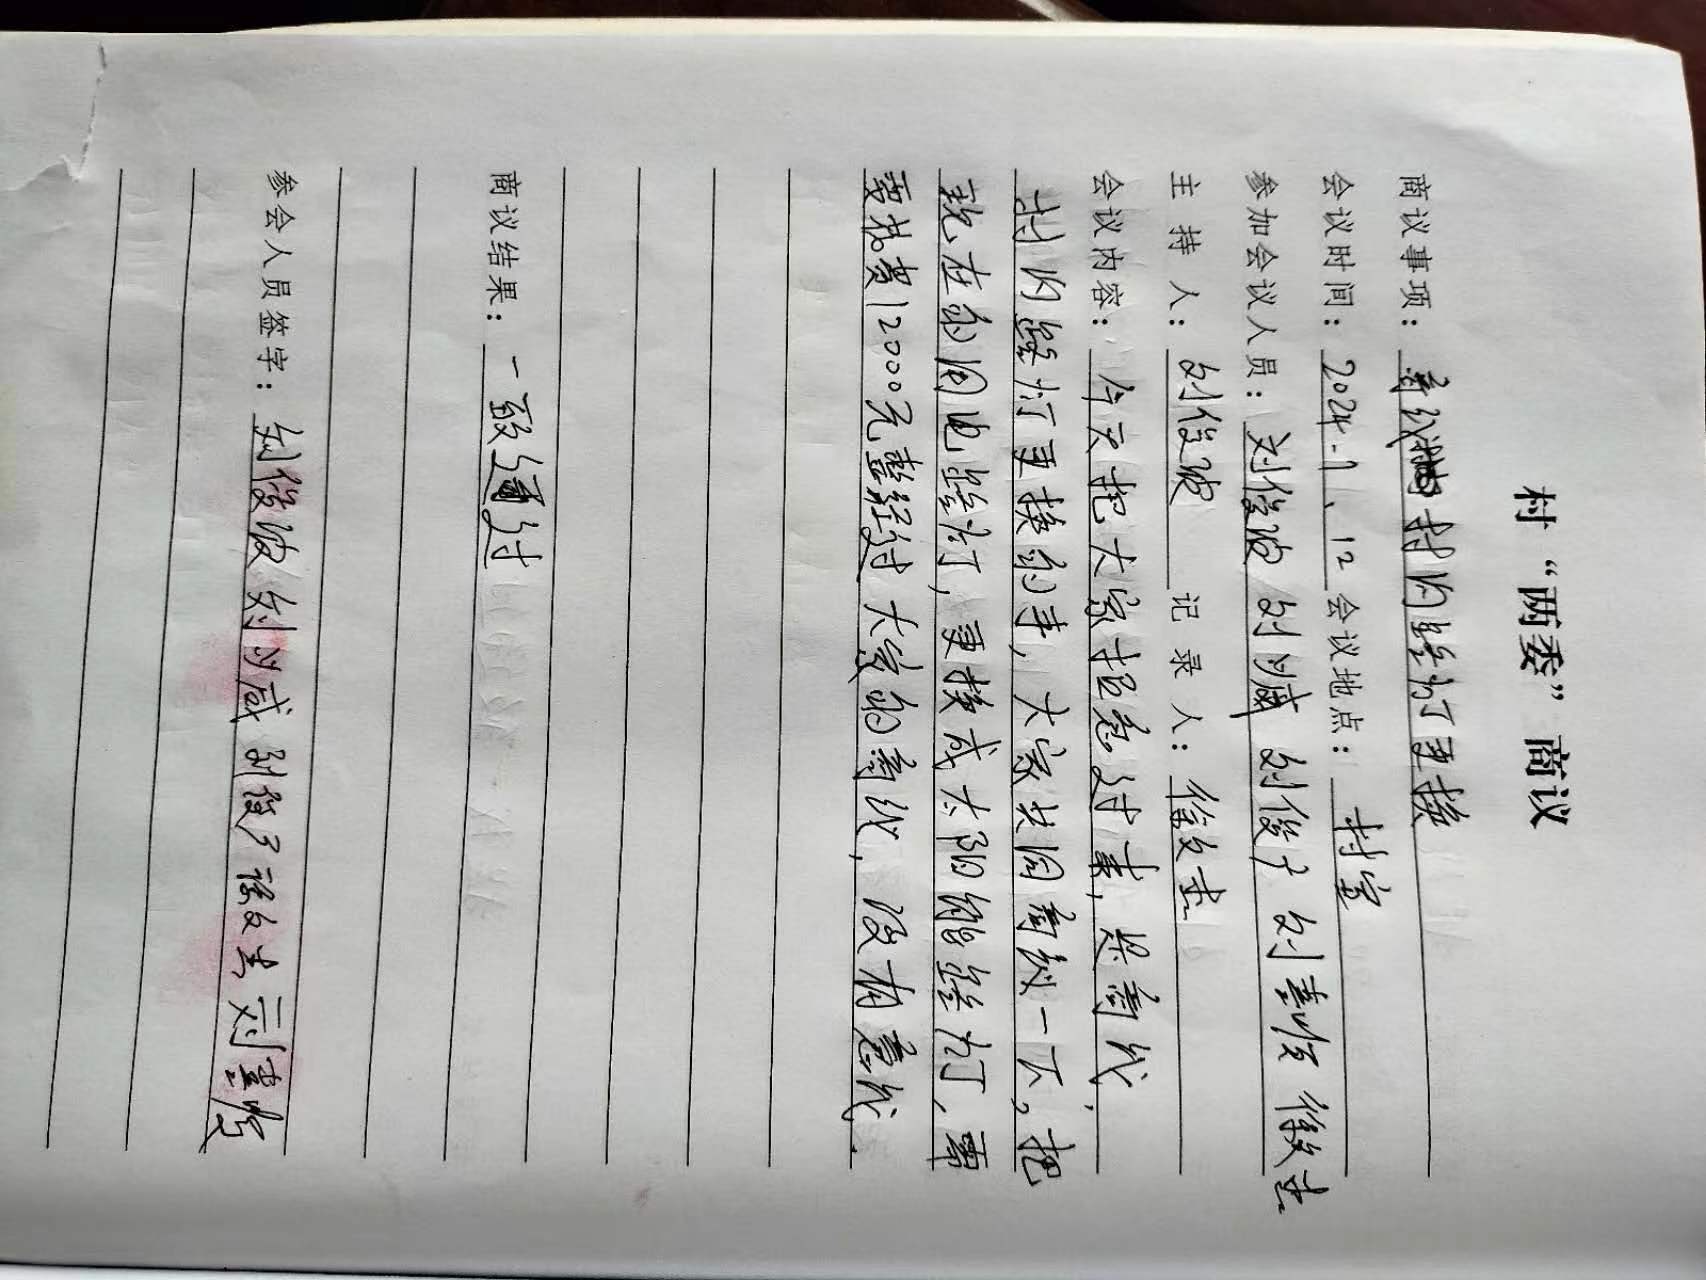 村“两委”商议
商议事项：商议村内路灯更换
会议时间：2024.1、12会议地点：村室
参加会议人员：刘俊波 刘少威 刘俊 刘喜 徐文
主持人：刘俊波 记录人：徐文
会议内容：今天把大家招急过来，是商议
村内路灯更换的事，大家共同商议一下，把
现在的用电路灯，更换成太阳能路灯，需
要花费12000元整经过大家的商议，没有意议．
商议结果：一致通过
参会人员签字：刘俊波 刘少威 刘俊 徐文 刘喜